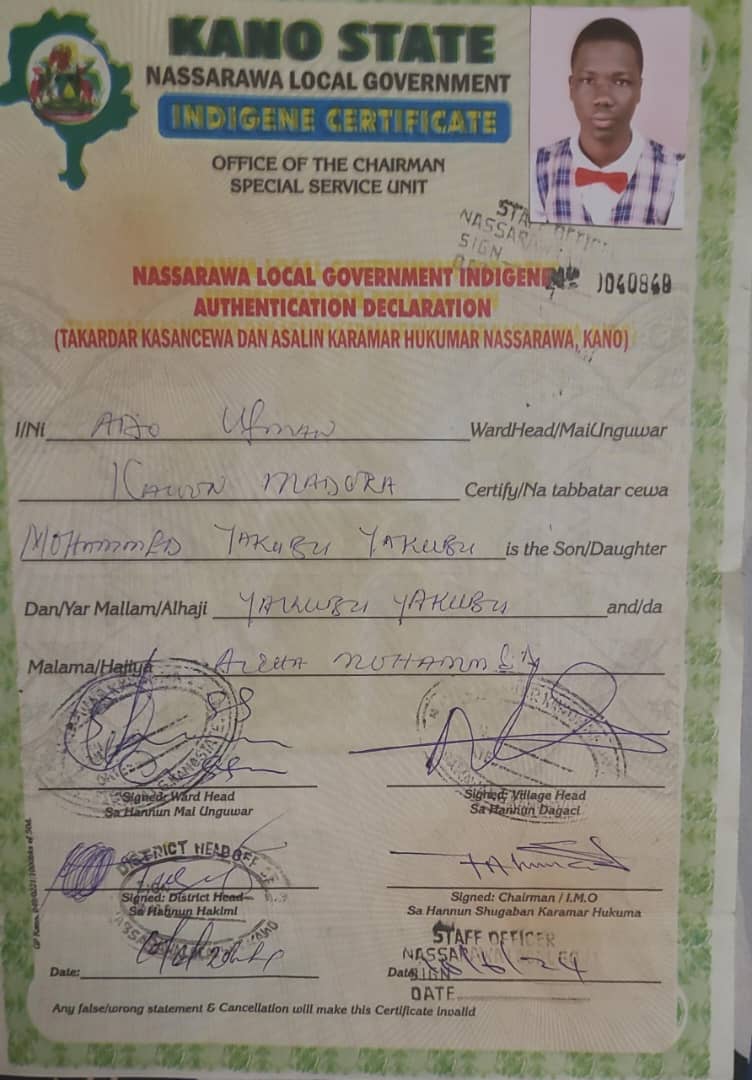 KANO STATE
NASSARAWA LOCAL GOVERNMENT
INDIGENE CERTIFICATE
OFFICE OF THE CHAIRMAN
SPECIAL SERVICE UNIT
STAFF OFFICER
NASSARAWA
SIGN
NASSARAWA LOCAL GOVERNMENT INDIGENE № 040849
AUTHENTICATION DECLARATION
(TAKARDAR KASANCEWA DAN ASALIN KARAMAR HUKUMAR NASSARAWA, KANO)
I/Ni ADO USMAN WardHead/MaiUnguwar
KAWON MADORA Certify/Na tabbatar cewa
MOHAMMED YAKUBU YAKUBU is the Son/Daughter
Dan/Yar Mallam/Alhaji YAKUBU YAKUBU and/da
Malama/Hajiya MOHAMMED
Signed: Ward Head
Sa Hannun Mai Unguwar
Signed: Village Head
Sa Hannun Dagaci
DISTRICT HEAD OFFICE
Signed: District Head
Sa Hannun Hakimi
Signed: Chairman / I.M.O
Sa Hannun Shugaban Karamar Hukuma
STAFF OFFICER
NASSARAWA
Date:
Date:
SIGN
DATE
Any false/wrong statement & Cancellation will make this Certificate invalid